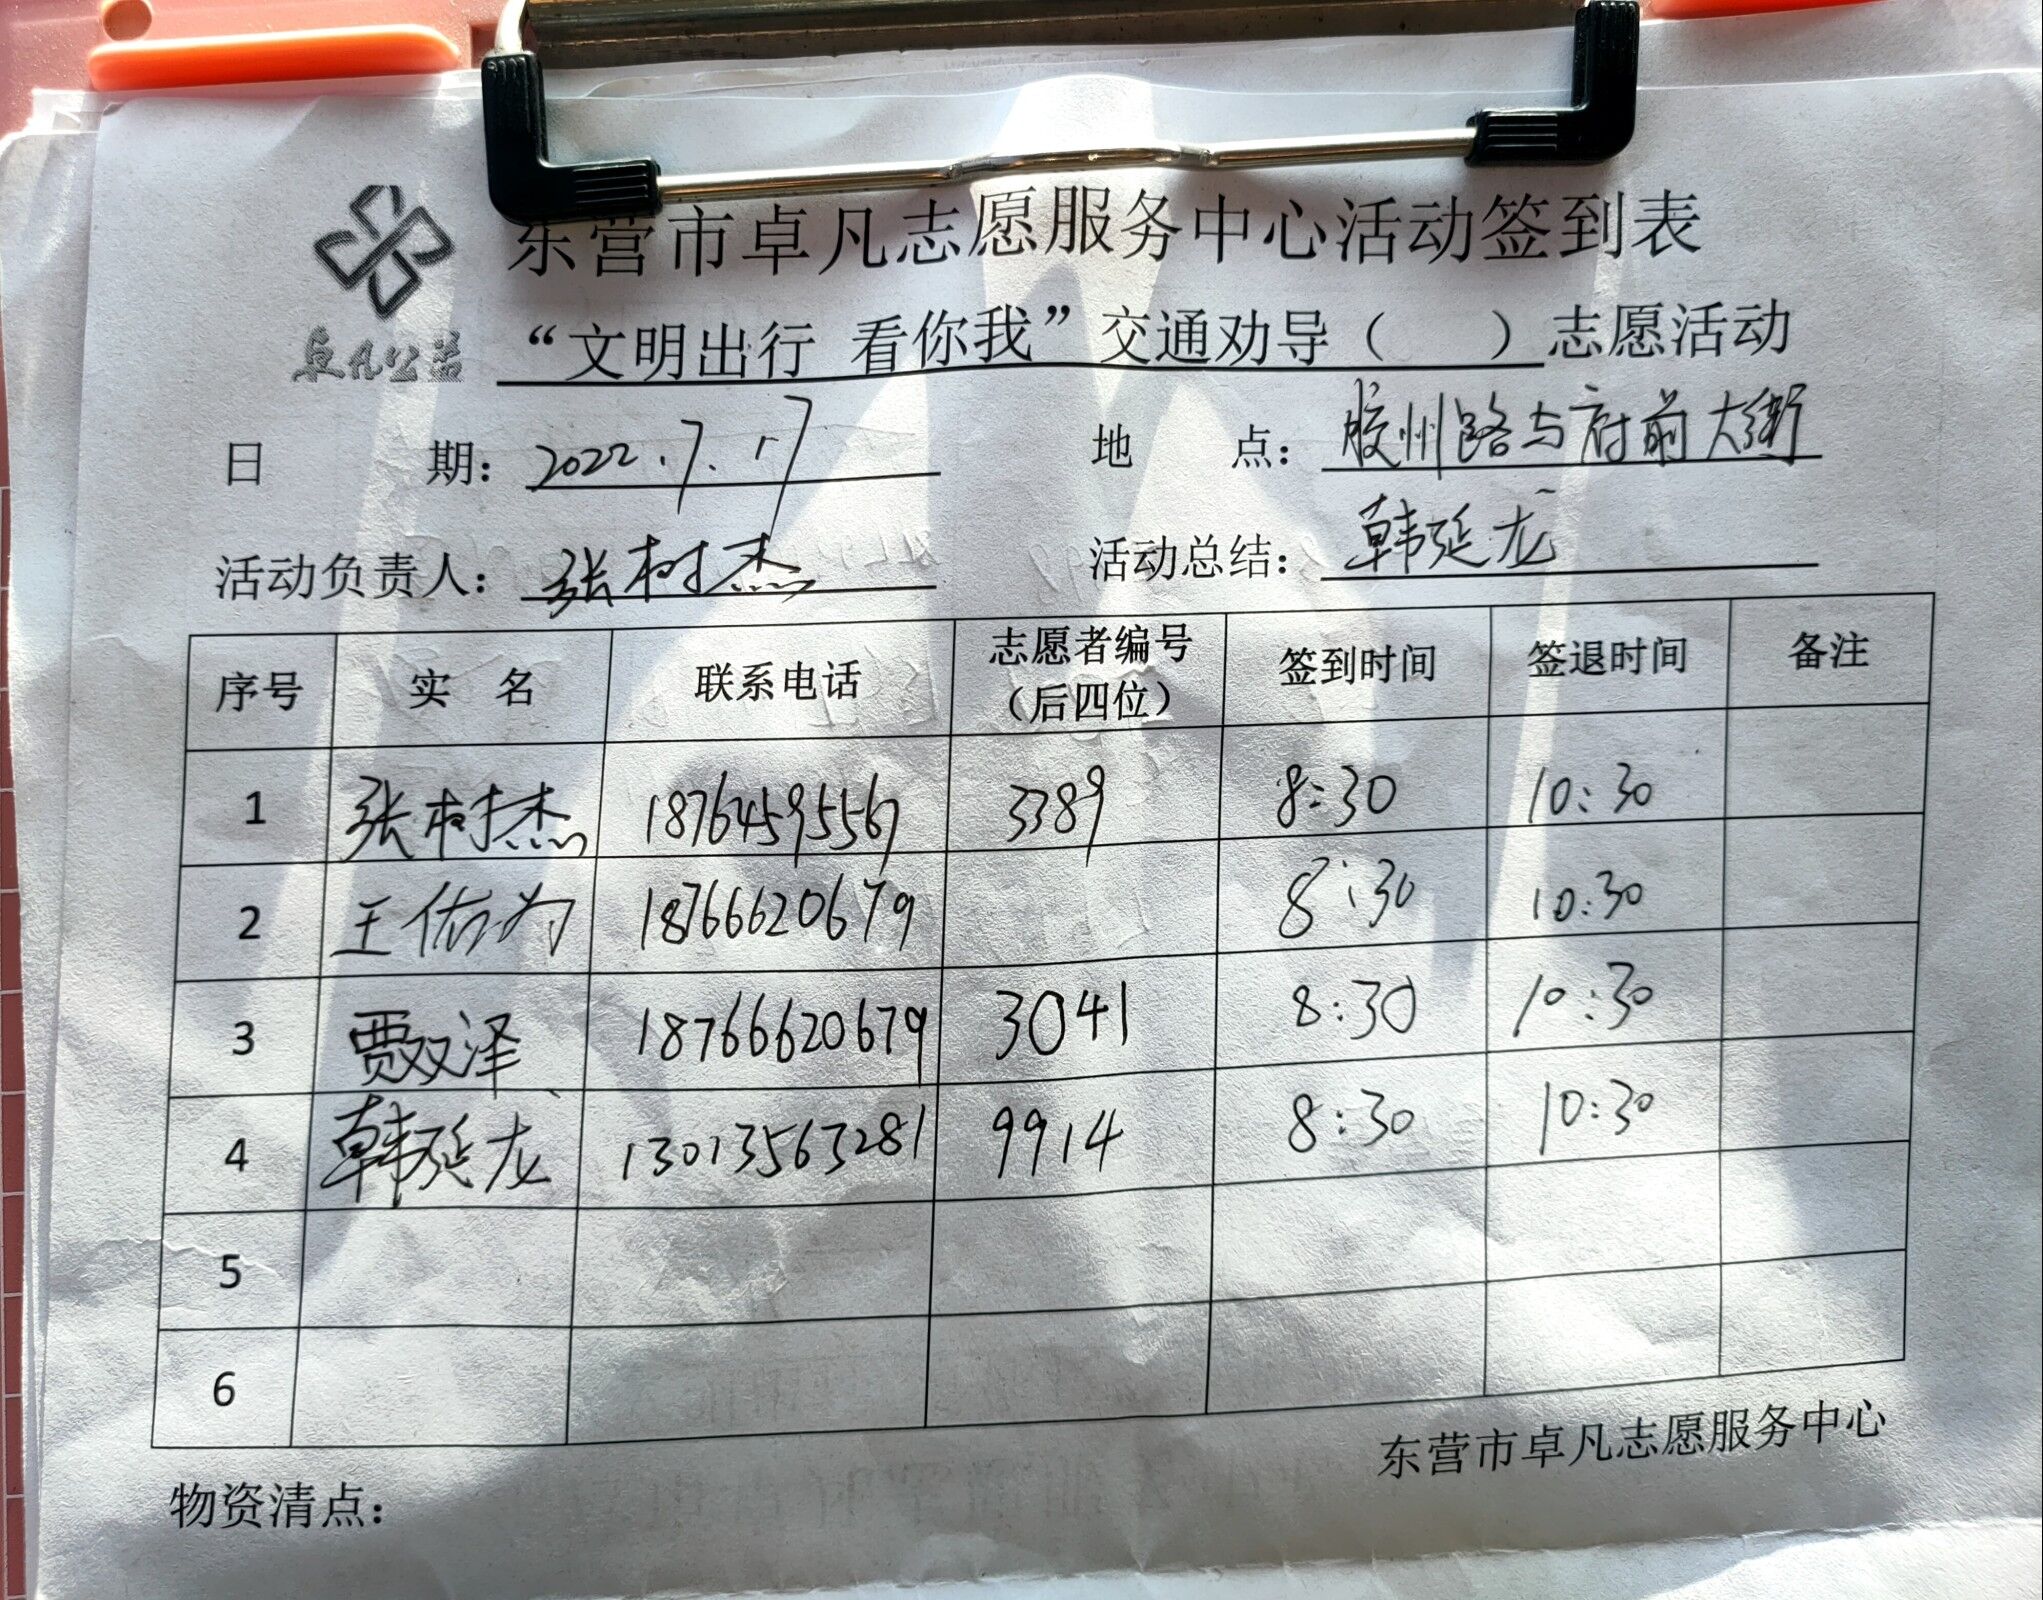 东营市卓凡志愿服务中心活动签到表
卓凡公益
“文明出行 看你我”交通劝导( )志愿活动
日 期: 2022.7.17 地 点: 胶州路与府前大街
活动负责人: 张树杰 活动总结: 韩延龙
序号 实 名 联系电话 志愿者编号(后四位) 签到时间 签退时间 备注
1 张树杰 18764595567 3389 8:30 10:30
2 王佑为 18766620679 8:30 10:30
3 贾双泽 18766620679 3041 8:30 10:30
4 韩延龙 13013563281 9914 8:30 10:30
5
6
东营市卓凡志愿服务中心
物资清点: